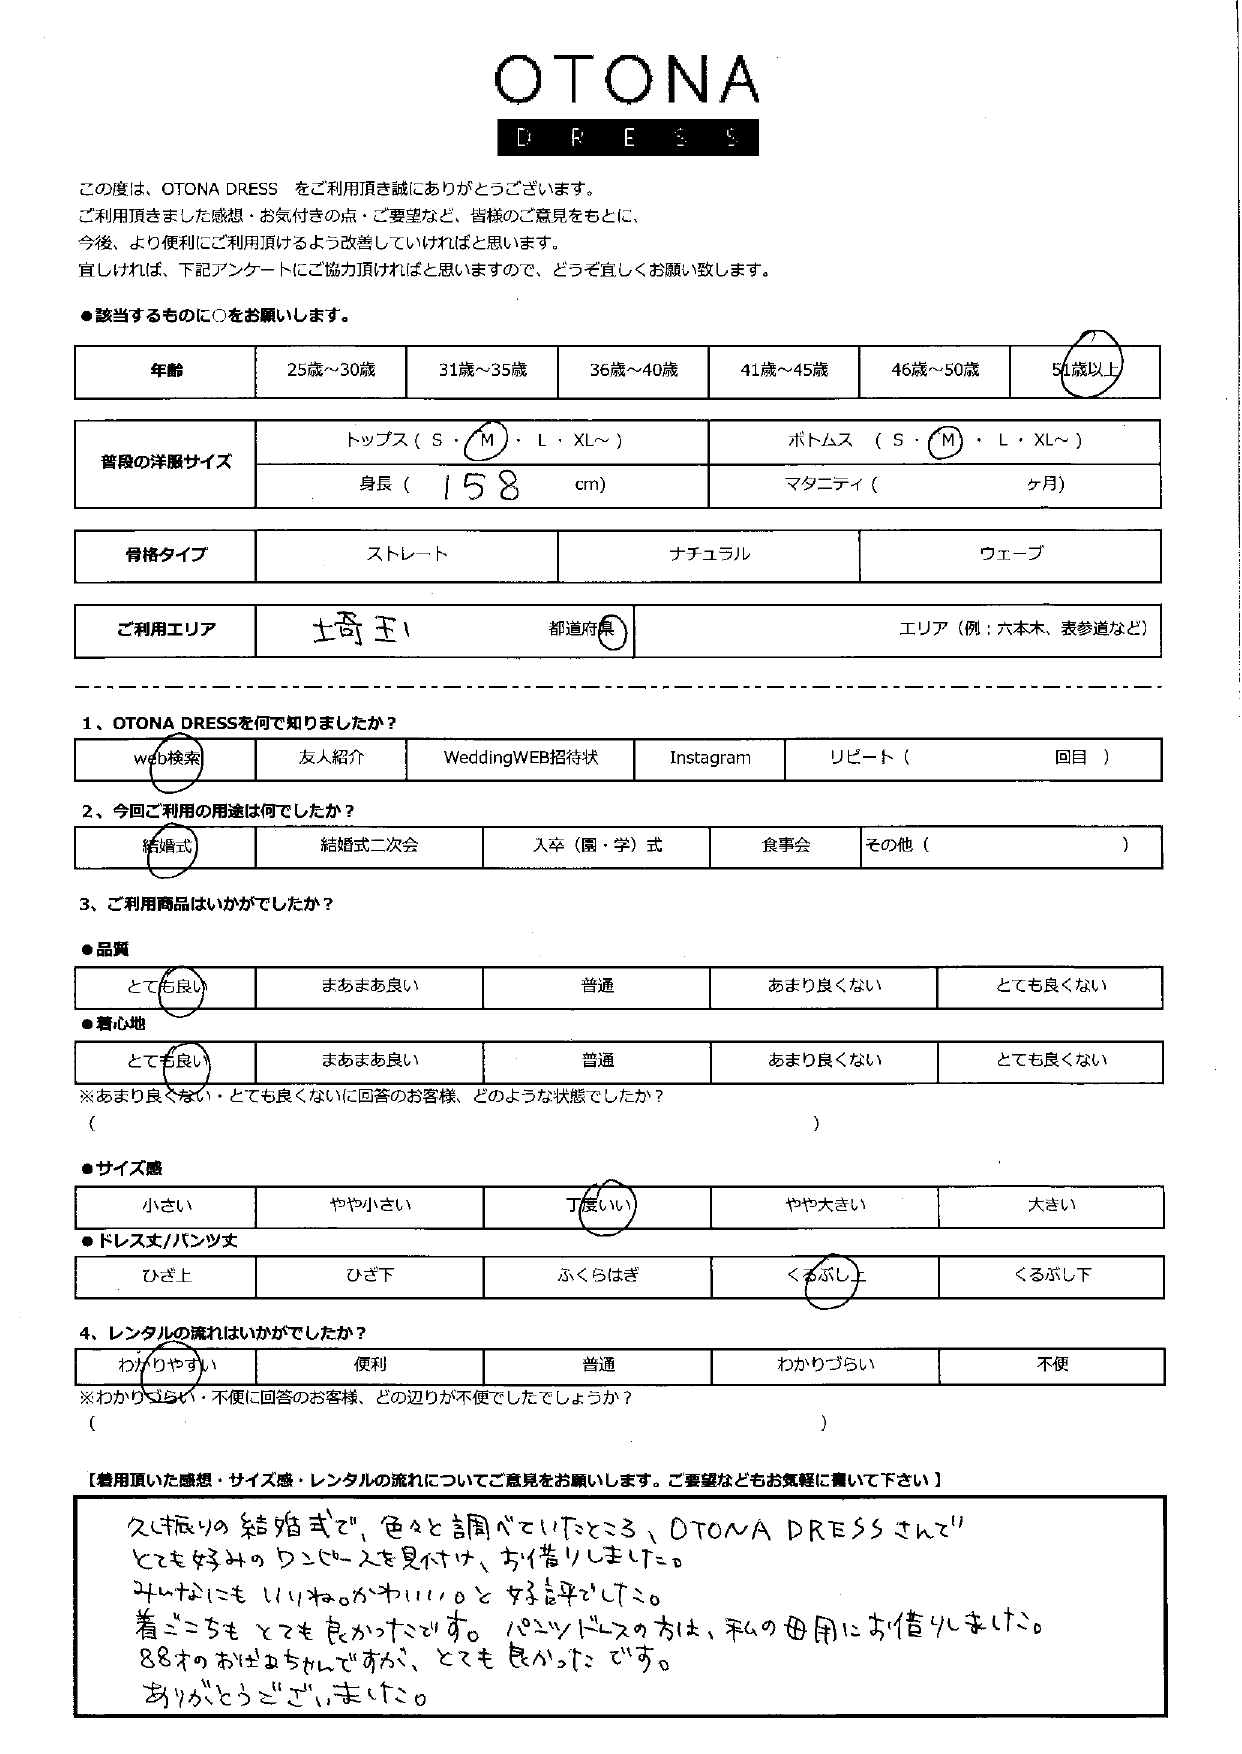 OTONA
DRESS
この度は、OTONA DRESS をご利用頂き誠にありがとうございます。
ご利用頂きました感想・お気付きの点・ご要望など、皆様のご意見をもとに、
今後、より便利にご利用頂けるよう改善していければと思います。
宜しければ、下記アンケートにご協力頂ければと思いますので、どうぞ宜しくお願い致します。
●該当するものに○をお願いします。
年齢 25歳～30歳 31歳～35歳 36歳～40歳 41歳～45歳 46歳～50歳 51歳以上
普段の洋服サイズ トップス ( S ・ M ・ L ・ XL～ ) ボトムス ( S ・ M ・ L ・ XL～ )
身長 ( 158 cm) マタニティ ( ヶ月)
骨格タイプ ストレート ナチュラル ウェーブ
ご利用エリア 埼玉 都道府県 エリア（例：六本木、表参道など）
1、OTONA DRESSを何で知りましたか？
web検索 友人紹介 WeddingWEB招待状 Instagram リピート ( 回目 )
2、今回ご利用の用途は何でしたか？
結婚式 結婚式二次会 入卒（園・学）式 食事会 その他 ( )
3、ご利用商品はいかがでしたか？
●品質
とても良い まあまあ良い 普通 あまり良くない とても良くない
●着心地
とても良い まあまあ良い 普通 あまり良くない とても良くない
※あまり良くない・とても良くないに回答のお客様、どのような状態でしたか？
( )
●サイズ感
小さい やや小さい 丁度いい やや大きい 大きい
●ドレス丈/パンツ丈
ひざ上 ひざ下 ふくらはぎ くるぶし上 くるぶし下
4、レンタルの流れはいかがでしたか？
わかりやすい 便利 普通 わかりづらい 不便
※わかりづらい・不便に回答のお客様、どの辺りが不便でしたでしょうか？
( )
【着用頂いた感想・サイズ感・レンタルの流れについてご意見をお願いします。ご要望などもお気軽に書いて下さい】
久し振りの結婚式で、色々と調べていたところ、OTONA DRESSさんで
とても好みのワンピースを見付け、お借りしました。
みんなにもいいね。かわいい。と好評でした。
着ごこちもとても良かったです。パンツドレスの方は、私の母用にお借りしました。
88才のおばあちゃんですが、とても良かったです。
ありがとうございました。